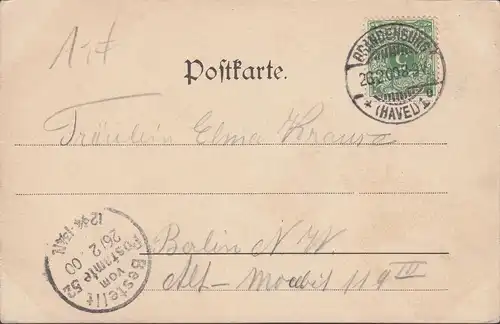 Postkarte.
BRANDENBURG
(HAVEL)
5
Fräulein Elma Krause
Berlin N. W.
Alt-Moabit 119 III
Bestellt
vom
Postamte 52
26/2 00